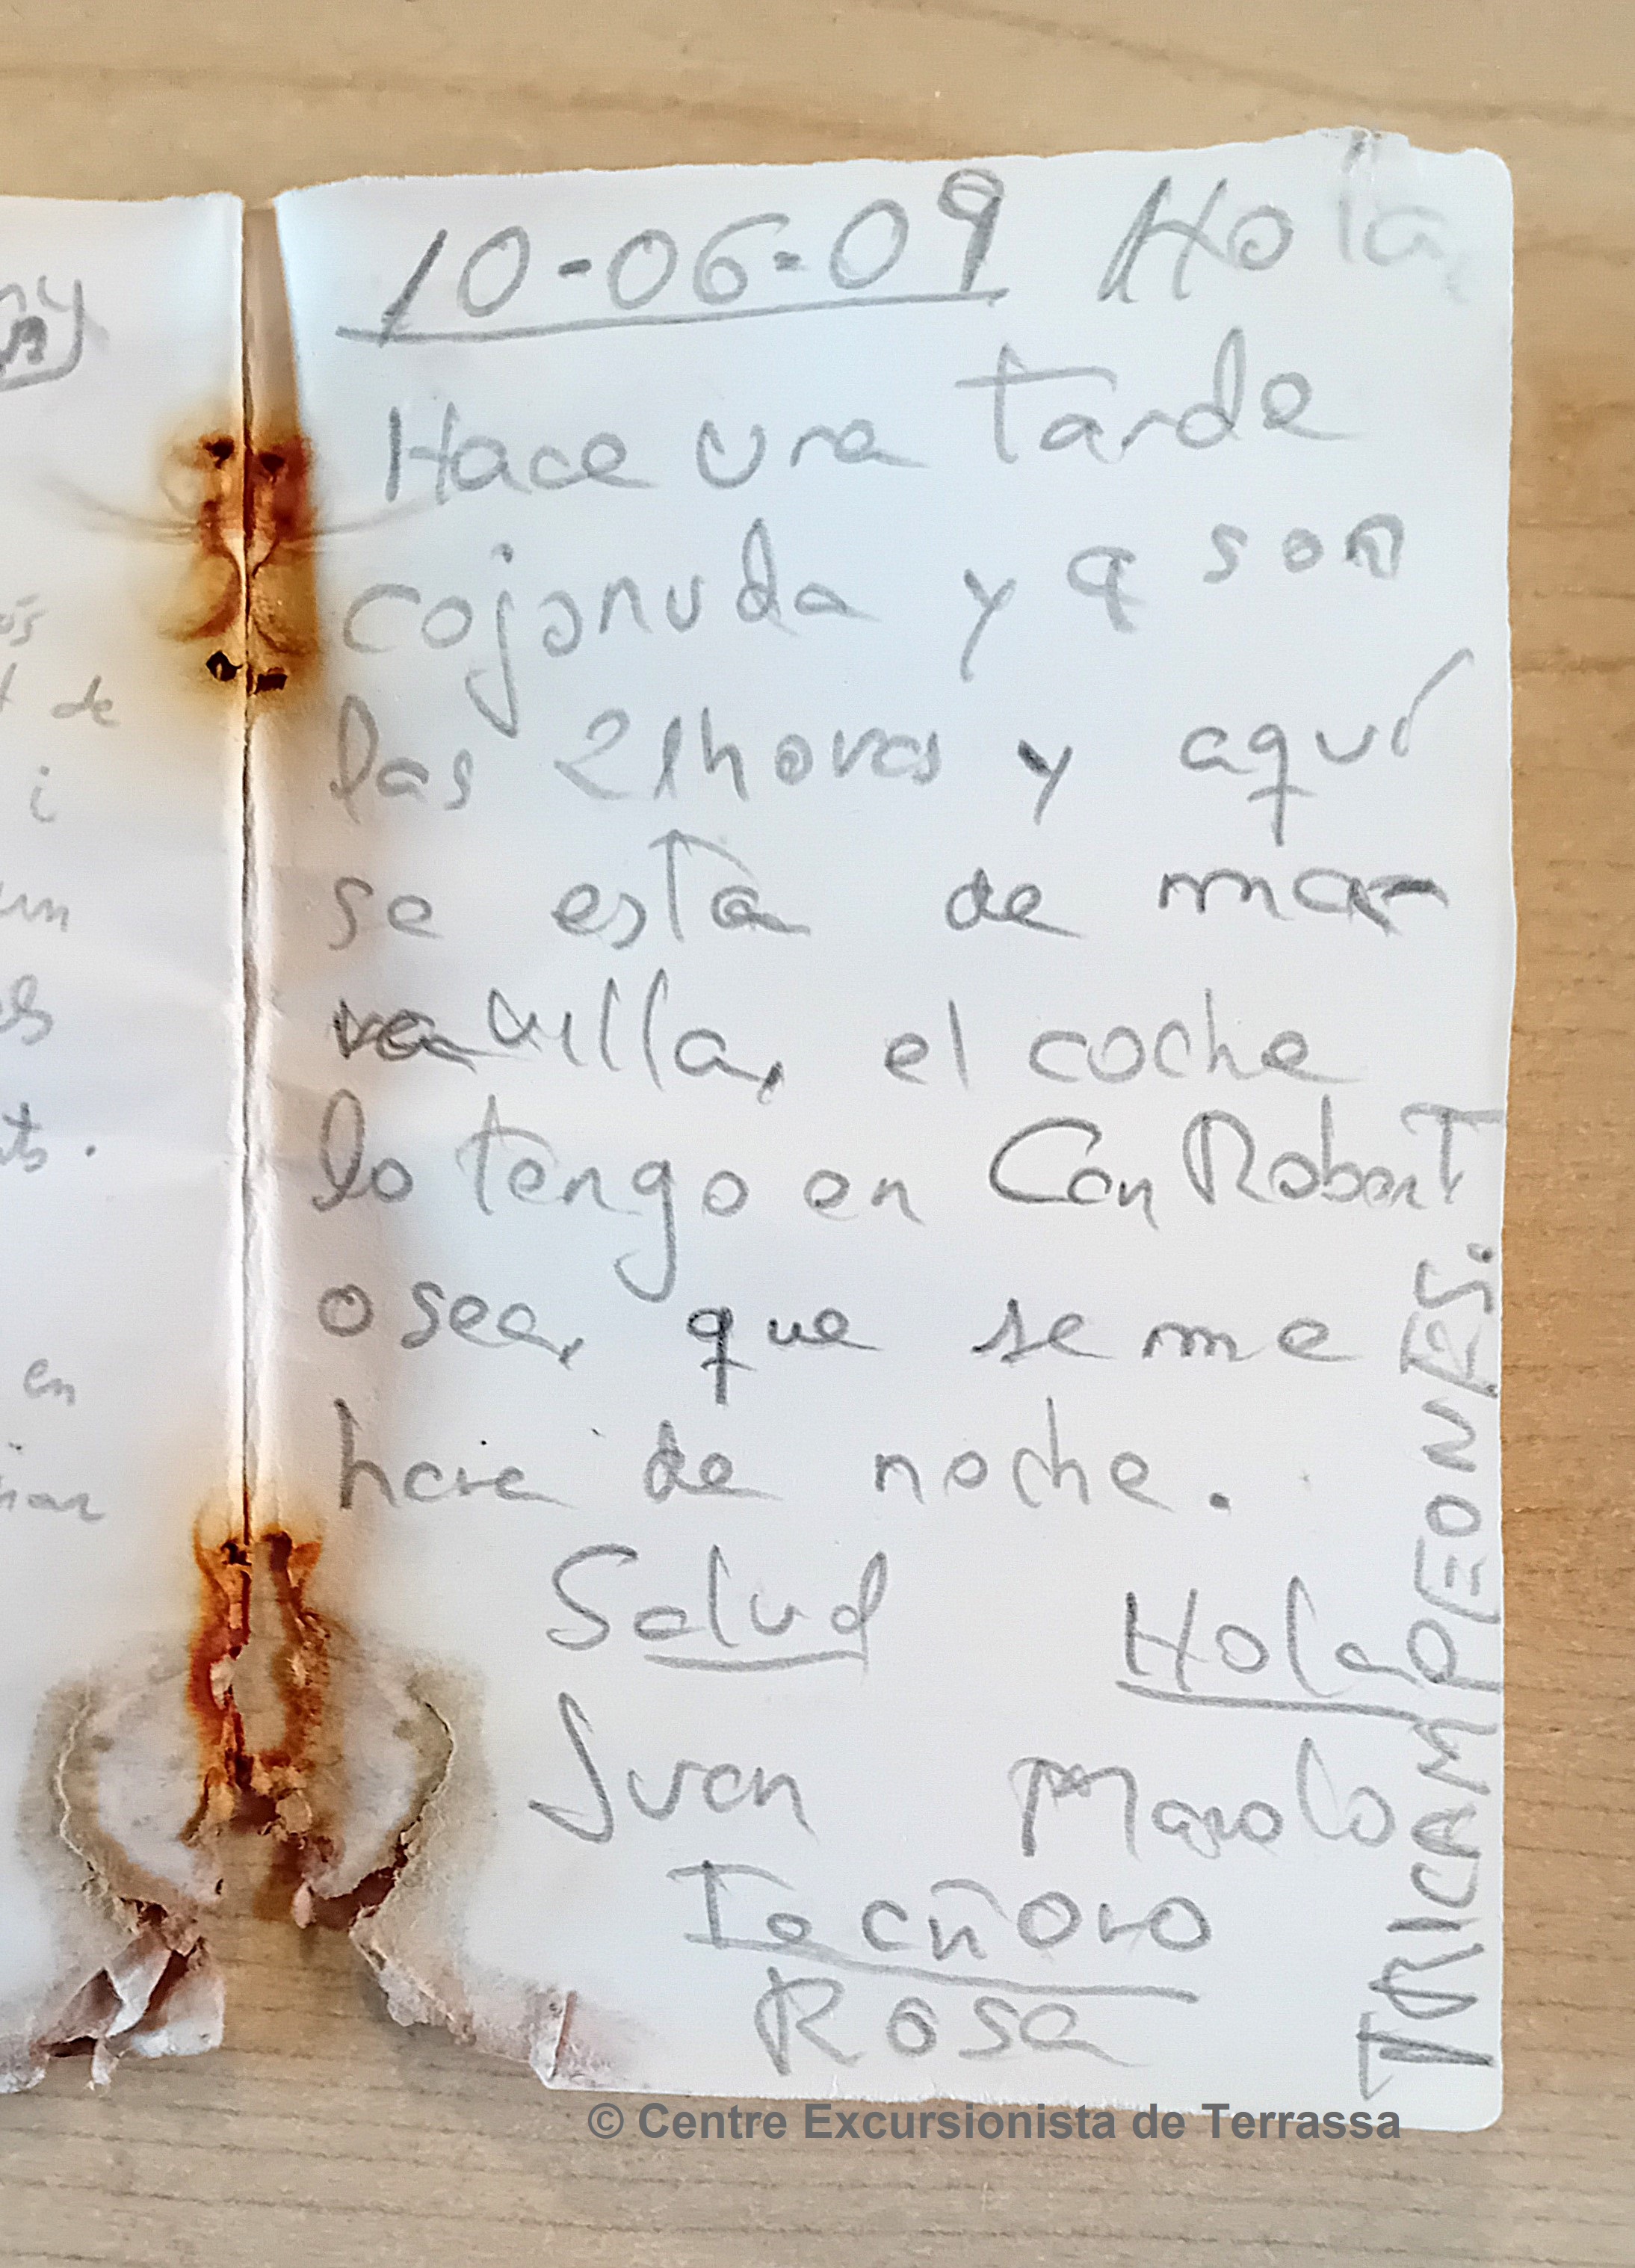 10-06-09 Hola,
Hace una tarde
cojonuda y q son
las 21horas y aquí
se está de mar-
villa, el coche
lo tengo en Can Robert
o sea, que se me
hará de noche.
Salud Hola
Juan Manolo
Rosa
TRICAMPEONES.
de
i
en
© Centre Excursionista de Terrassa